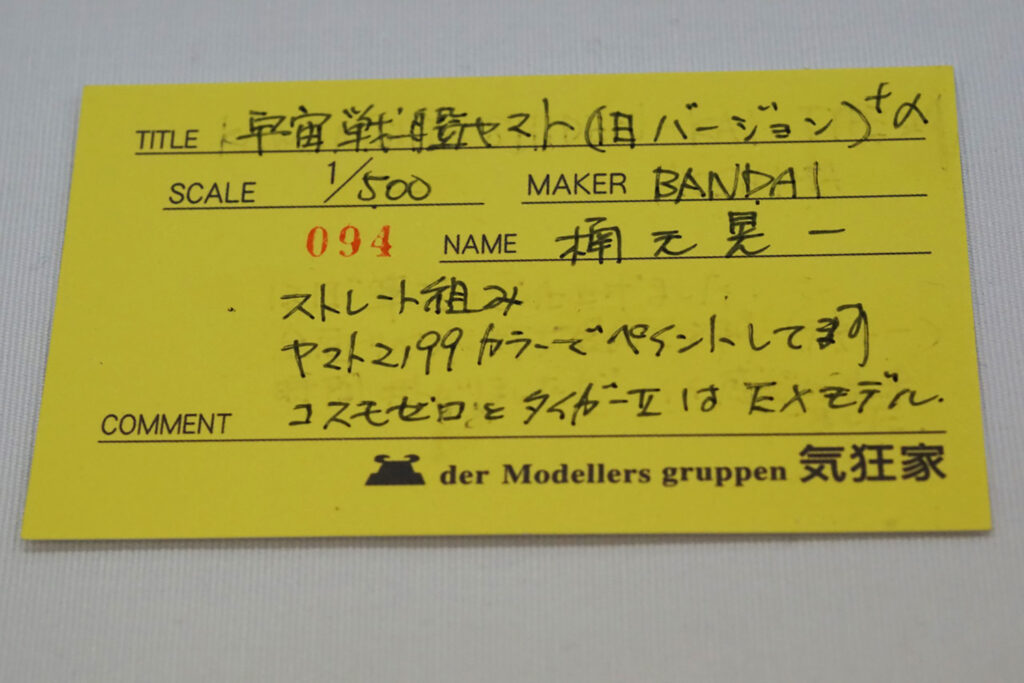 TITLE 宇宙戦艦ヤマト(旧バージョン)+α
SCALE 1/500 MAKER BANDAI
094 NAME 楠元晃一
ストレート組み
ヤマト2199カラーでペイントしてます
コスモゼロとタイガーⅡはEXモデル.
COMMENT
der Modellers gruppen 気狂家